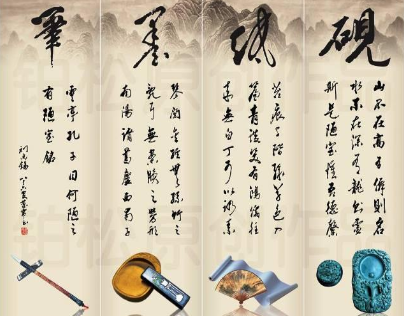 硯
山不在高有僊則名
水不在深有龍則靈
斯是陋室惟吾德馨
紙
苔痕上階綠草色入
簾青談笑有鴻儒往
來無白丁可以調素
墨
琴閱金經無絲竹之
亂耳無案牘之勞形
南陽諸葛廬西蜀子
筆
雲亭孔子曰何陋之
有陋室銘
劉禹錫